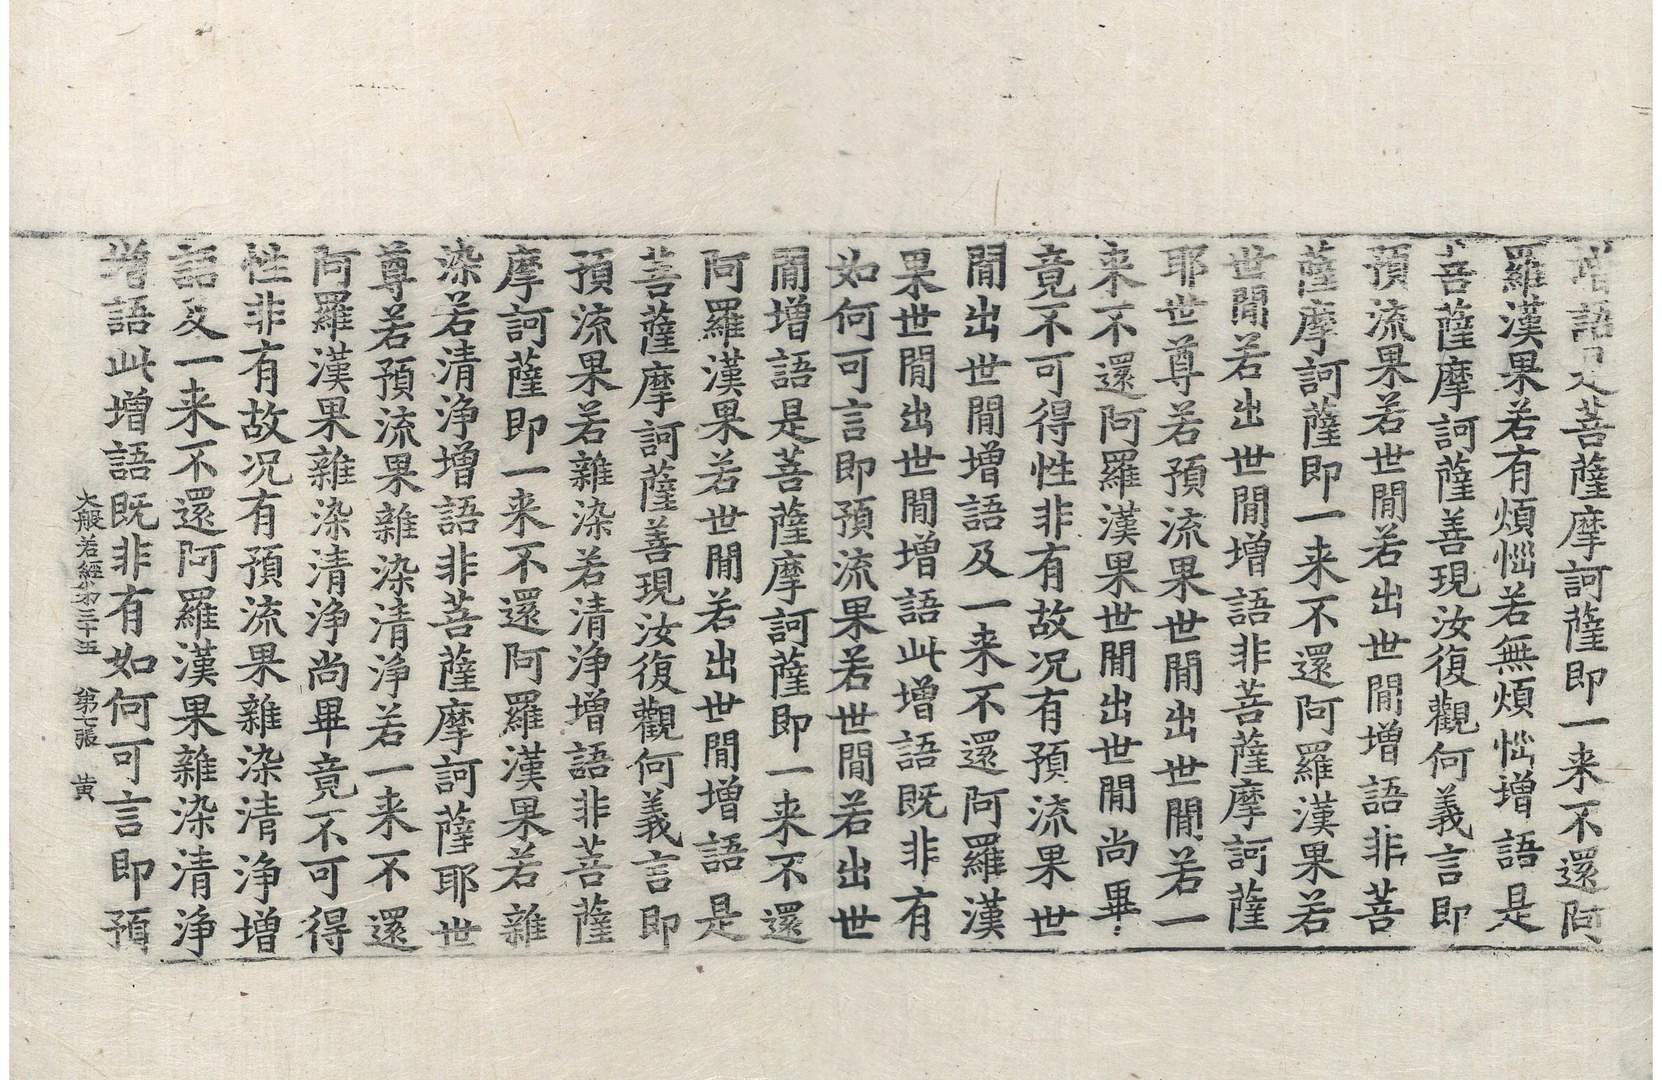 增語是菩薩摩訶薩即一来不還阿
羅漢果若有煩惱若無煩惱增語是
菩薩摩訶薩善現汝復觀何義言即
預流果若世閒若出世閒增語非菩
薩摩訶薩即一来不還阿羅漢果若
世閒若出世閒增語非菩薩摩訶薩
耶世尊若預流果世閒出世閒若一
来不還阿羅漢果世閒出世閒尚畢
竟不可得性非有故况有預流果世
閒出世閒增語及一来不還阿羅漢
果世閒出世閒增語此增語既非有
如何可言即預流果若世閒若出世
閒增語是菩薩摩訶薩即一来不還
阿羅漢果若世閒若出世閒增語是
菩薩摩訶薩善現汝復觀何義言即
預流果若雜染若清淨增語非菩薩
摩訶薩即一来不還阿羅漢果若雜
染若清淨增語非菩薩摩訶薩耶世
尊若預流果雜染清淨若一来不還
阿羅漢果雜染清淨尚畢竟不可得
性非有故况有預流果雜染清淨增
語及一来不還阿羅漢果雜染清淨
增語此增語既非有如何可言即預
大般若經第三十五 第七張 黄